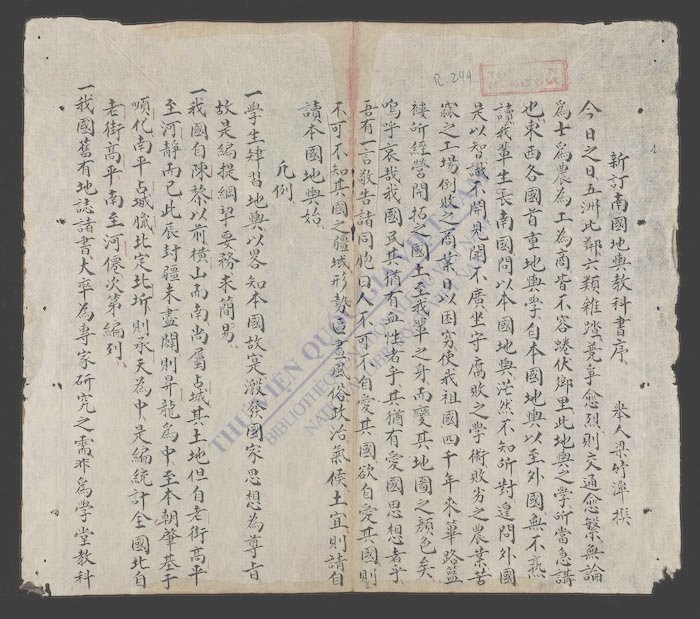 新訂南國地輿教科書序 舉人梁竹潭撰
今日之日五洲比鄰六類雜踏競爭愈烈則交通愈繁無論
為士為農為工為商皆不容踡伏鄉里此地輿之學所當急講
也東西各國首重地輿學自本國地輿以至外國無不熟
讀我輩生長南國問以本國地輿茫然不知所對遑問外國
是以智識不開見聞不廣坐守腐敗之學術敗劣之農業苦
窳之工場倒敗之商業日以困窮使我祖國四千年來篳路籃
褸所經營開拓之國土至我輩之身而變其地圖之顏色矣
嗚乎哀哉我國民其猶有血性者乎其猶有愛國思想者乎
吾有一言敬告諸同胞曰人不可不自愛其國欲自愛其國則
不可不知其國之疆域形勢區畫風俗政治氣候土宜則請自
讀本國地輿始
凡例
一學生肄習地輿以畧知本國故寔激發國家思想為尊旨
故是編提綱挈要務求簡易
一我國自陳黎以前橫山而南尚屬占城其土地但自老街高平
至河靜而已此辰封疆未盡闢則昇龍為中至本朝肇基于
順化南平占城臘北定北圻則承天為中是編統計全國北自
老街高平南至河僊次第編列
一我國舊有地誌諸書大率為專家研究之需非為學堂教科
R.244
THƯ VIỆN QUỐC GIA VIỆT NAM